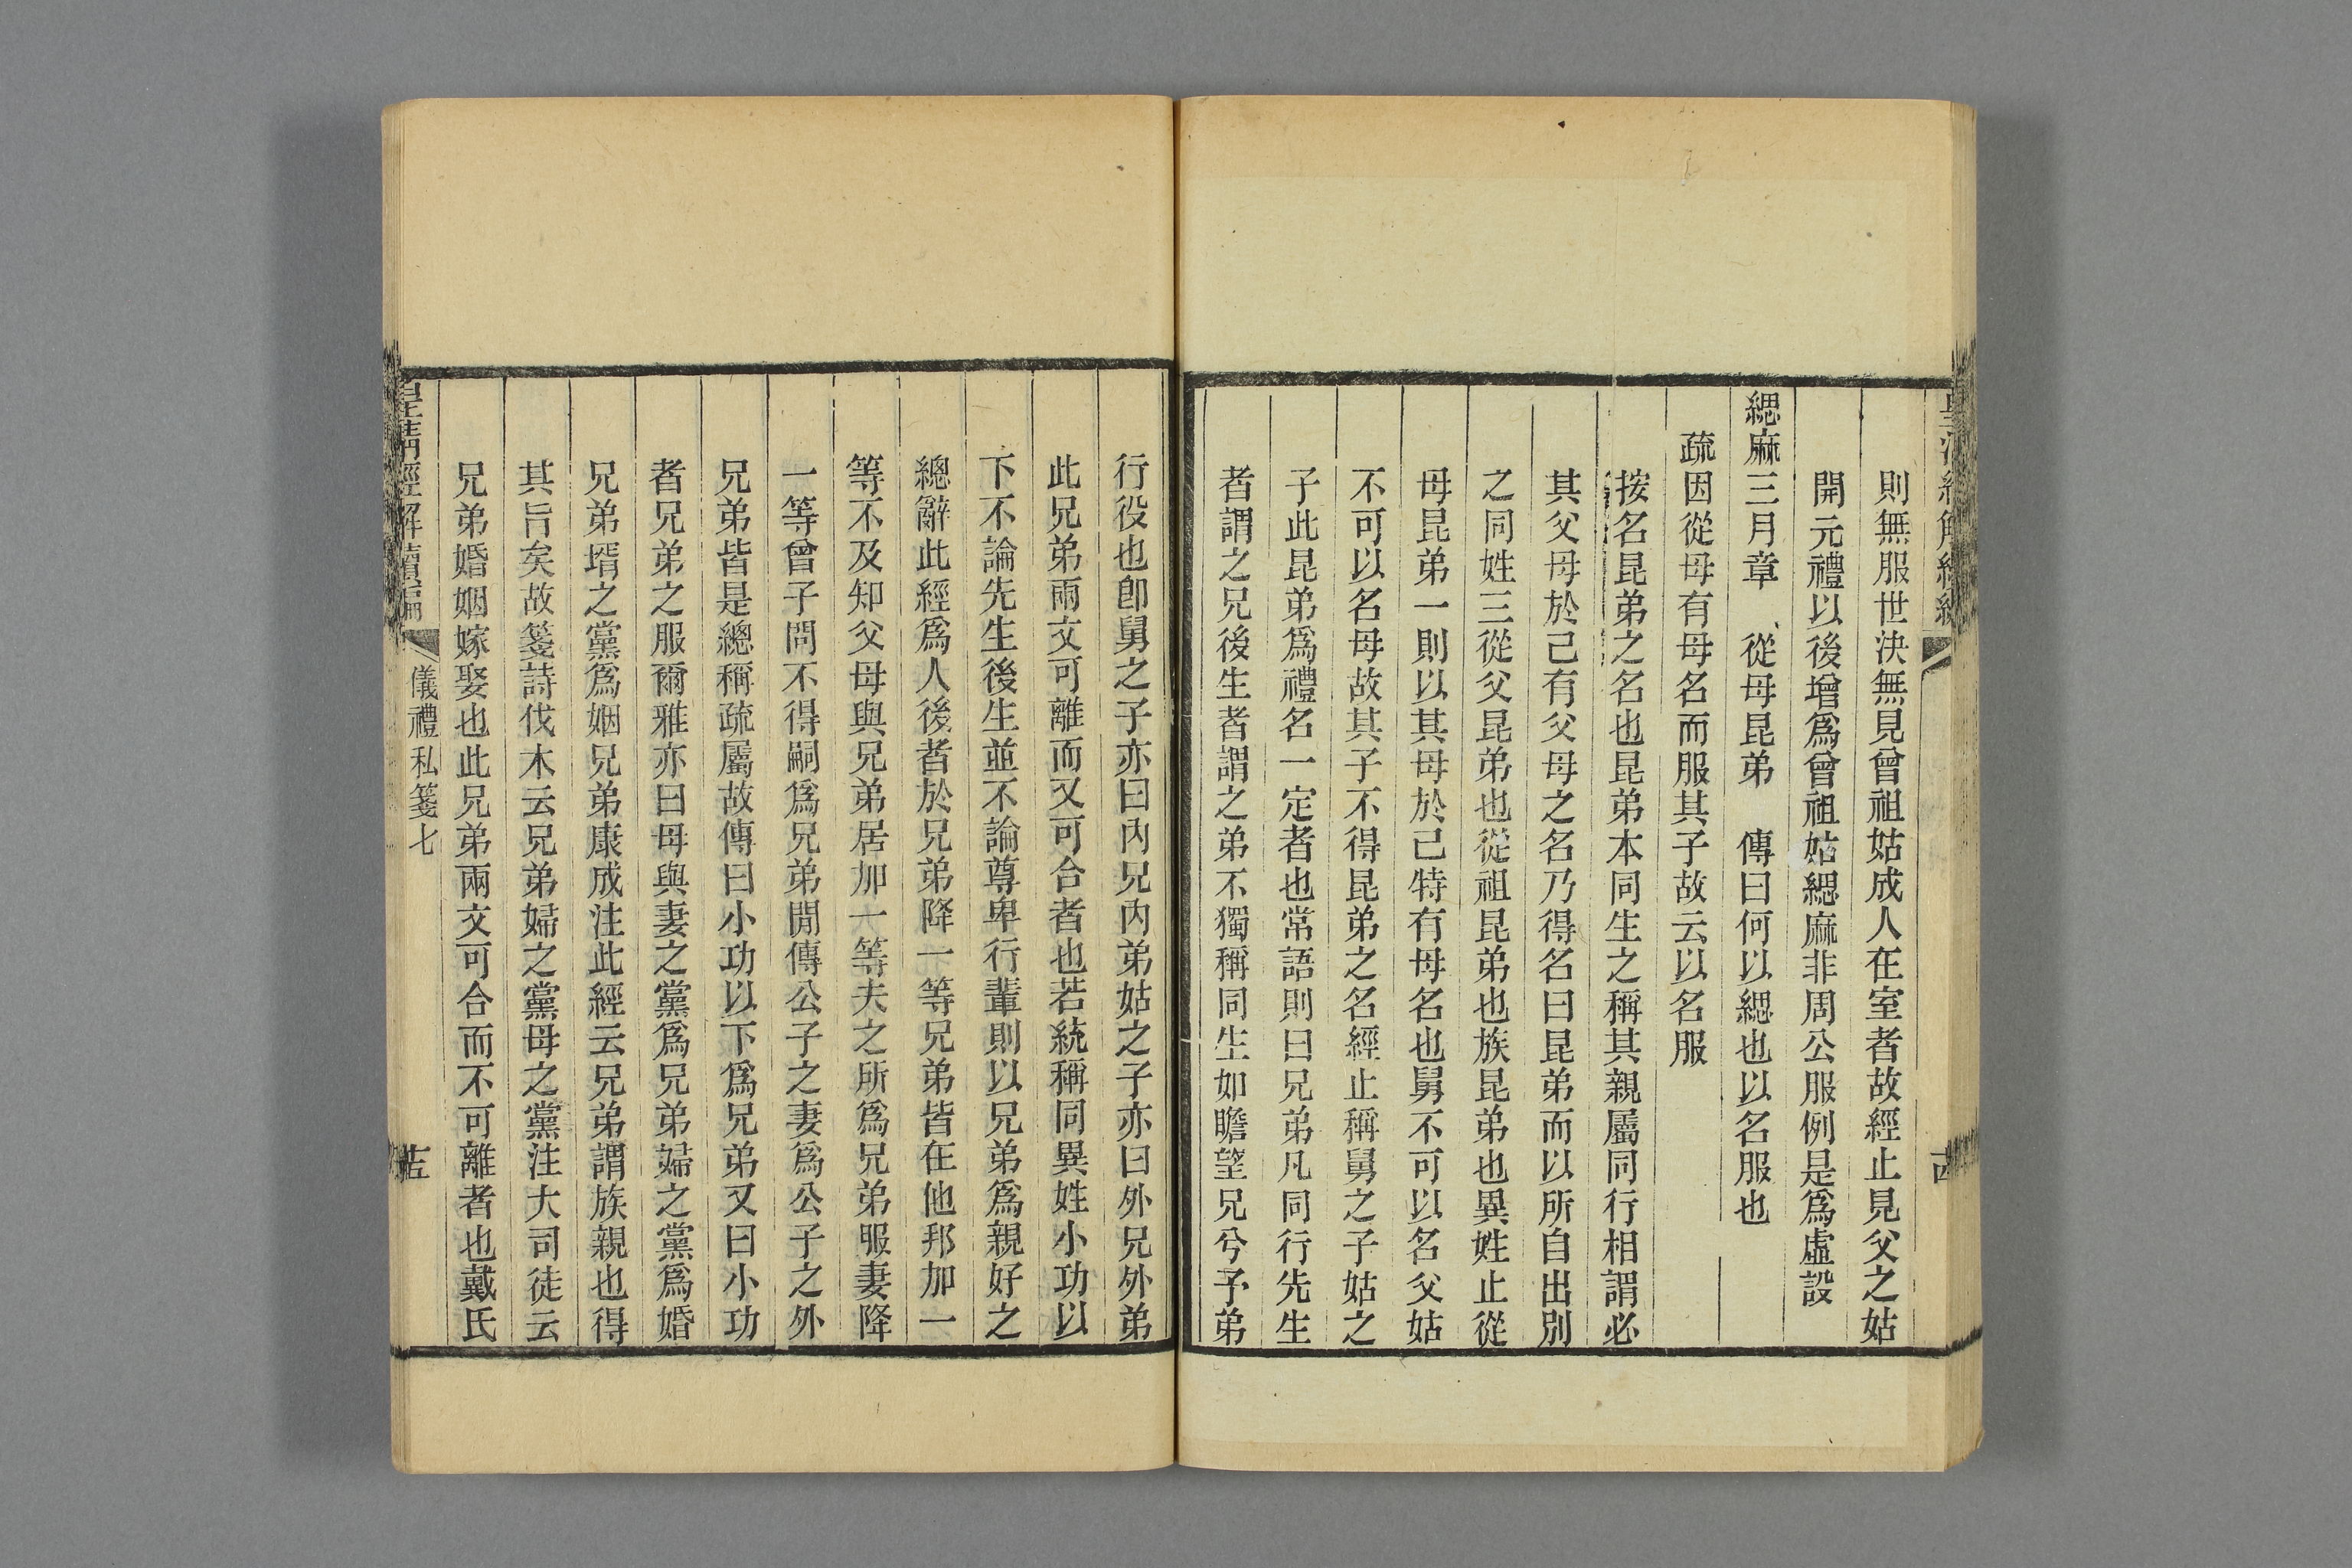 則無服世決無見曾祖姑成人在室者故經止見父之姑
開元禮以後增爲曾祖姑緦麻非周公服例是爲虛設
緦麻三月章　從母昆弟　傳曰何以緦也以名服也
疏因從母有母名而服其子故云以名服
按名昆弟之名也昆弟本同生之稱其親屬同行相謂必
其父母於己有父母之名乃得名曰昆弟而以所自出別
之同姓三從父昆弟也從祖昆弟也族昆弟也異姓止從
母昆弟一則以其母於己特有母名也舅不可以名父姑
不可以名母故其子不得昆弟之名經止稱舅之子姑之
子此昆弟爲禮名一定者也常語則曰兄弟凡同行先生
者謂之兄後生者謂之弟不獨稱同生如瞻望兄兮予弟
行役也卽舅之子亦曰內兄內弟姑之子亦曰外兄外弟
此兄弟兩文可離而又可合者也若統稱同異姓小功以
下不論先生後生並不論尊卑行輩則以兄弟爲親好之
總辭此經爲人後者於兄弟降一等兄弟皆在他邦加一
等不及知父母與兄弟居加一等夫之所爲兄弟服妻降
一等曾子問不得嗣爲兄弟閒傳公子之妻爲公子之外
兄弟皆是總稱疏屬故傳曰小功以下爲兄弟又曰小功
者兄弟之服爾雅亦曰母與妻之黨爲兄弟婦之黨爲婚
兄弟壻之黨爲姻兄弟康成注此經云兄弟謂族親也得
其旨矣故箋詩伐木云兄弟婦之黨母之黨注大司徒云
兄弟婚姻嫁娶也此兄弟兩文可合而不可離者也戴氏
皇清經解續編
儀禮私箋七